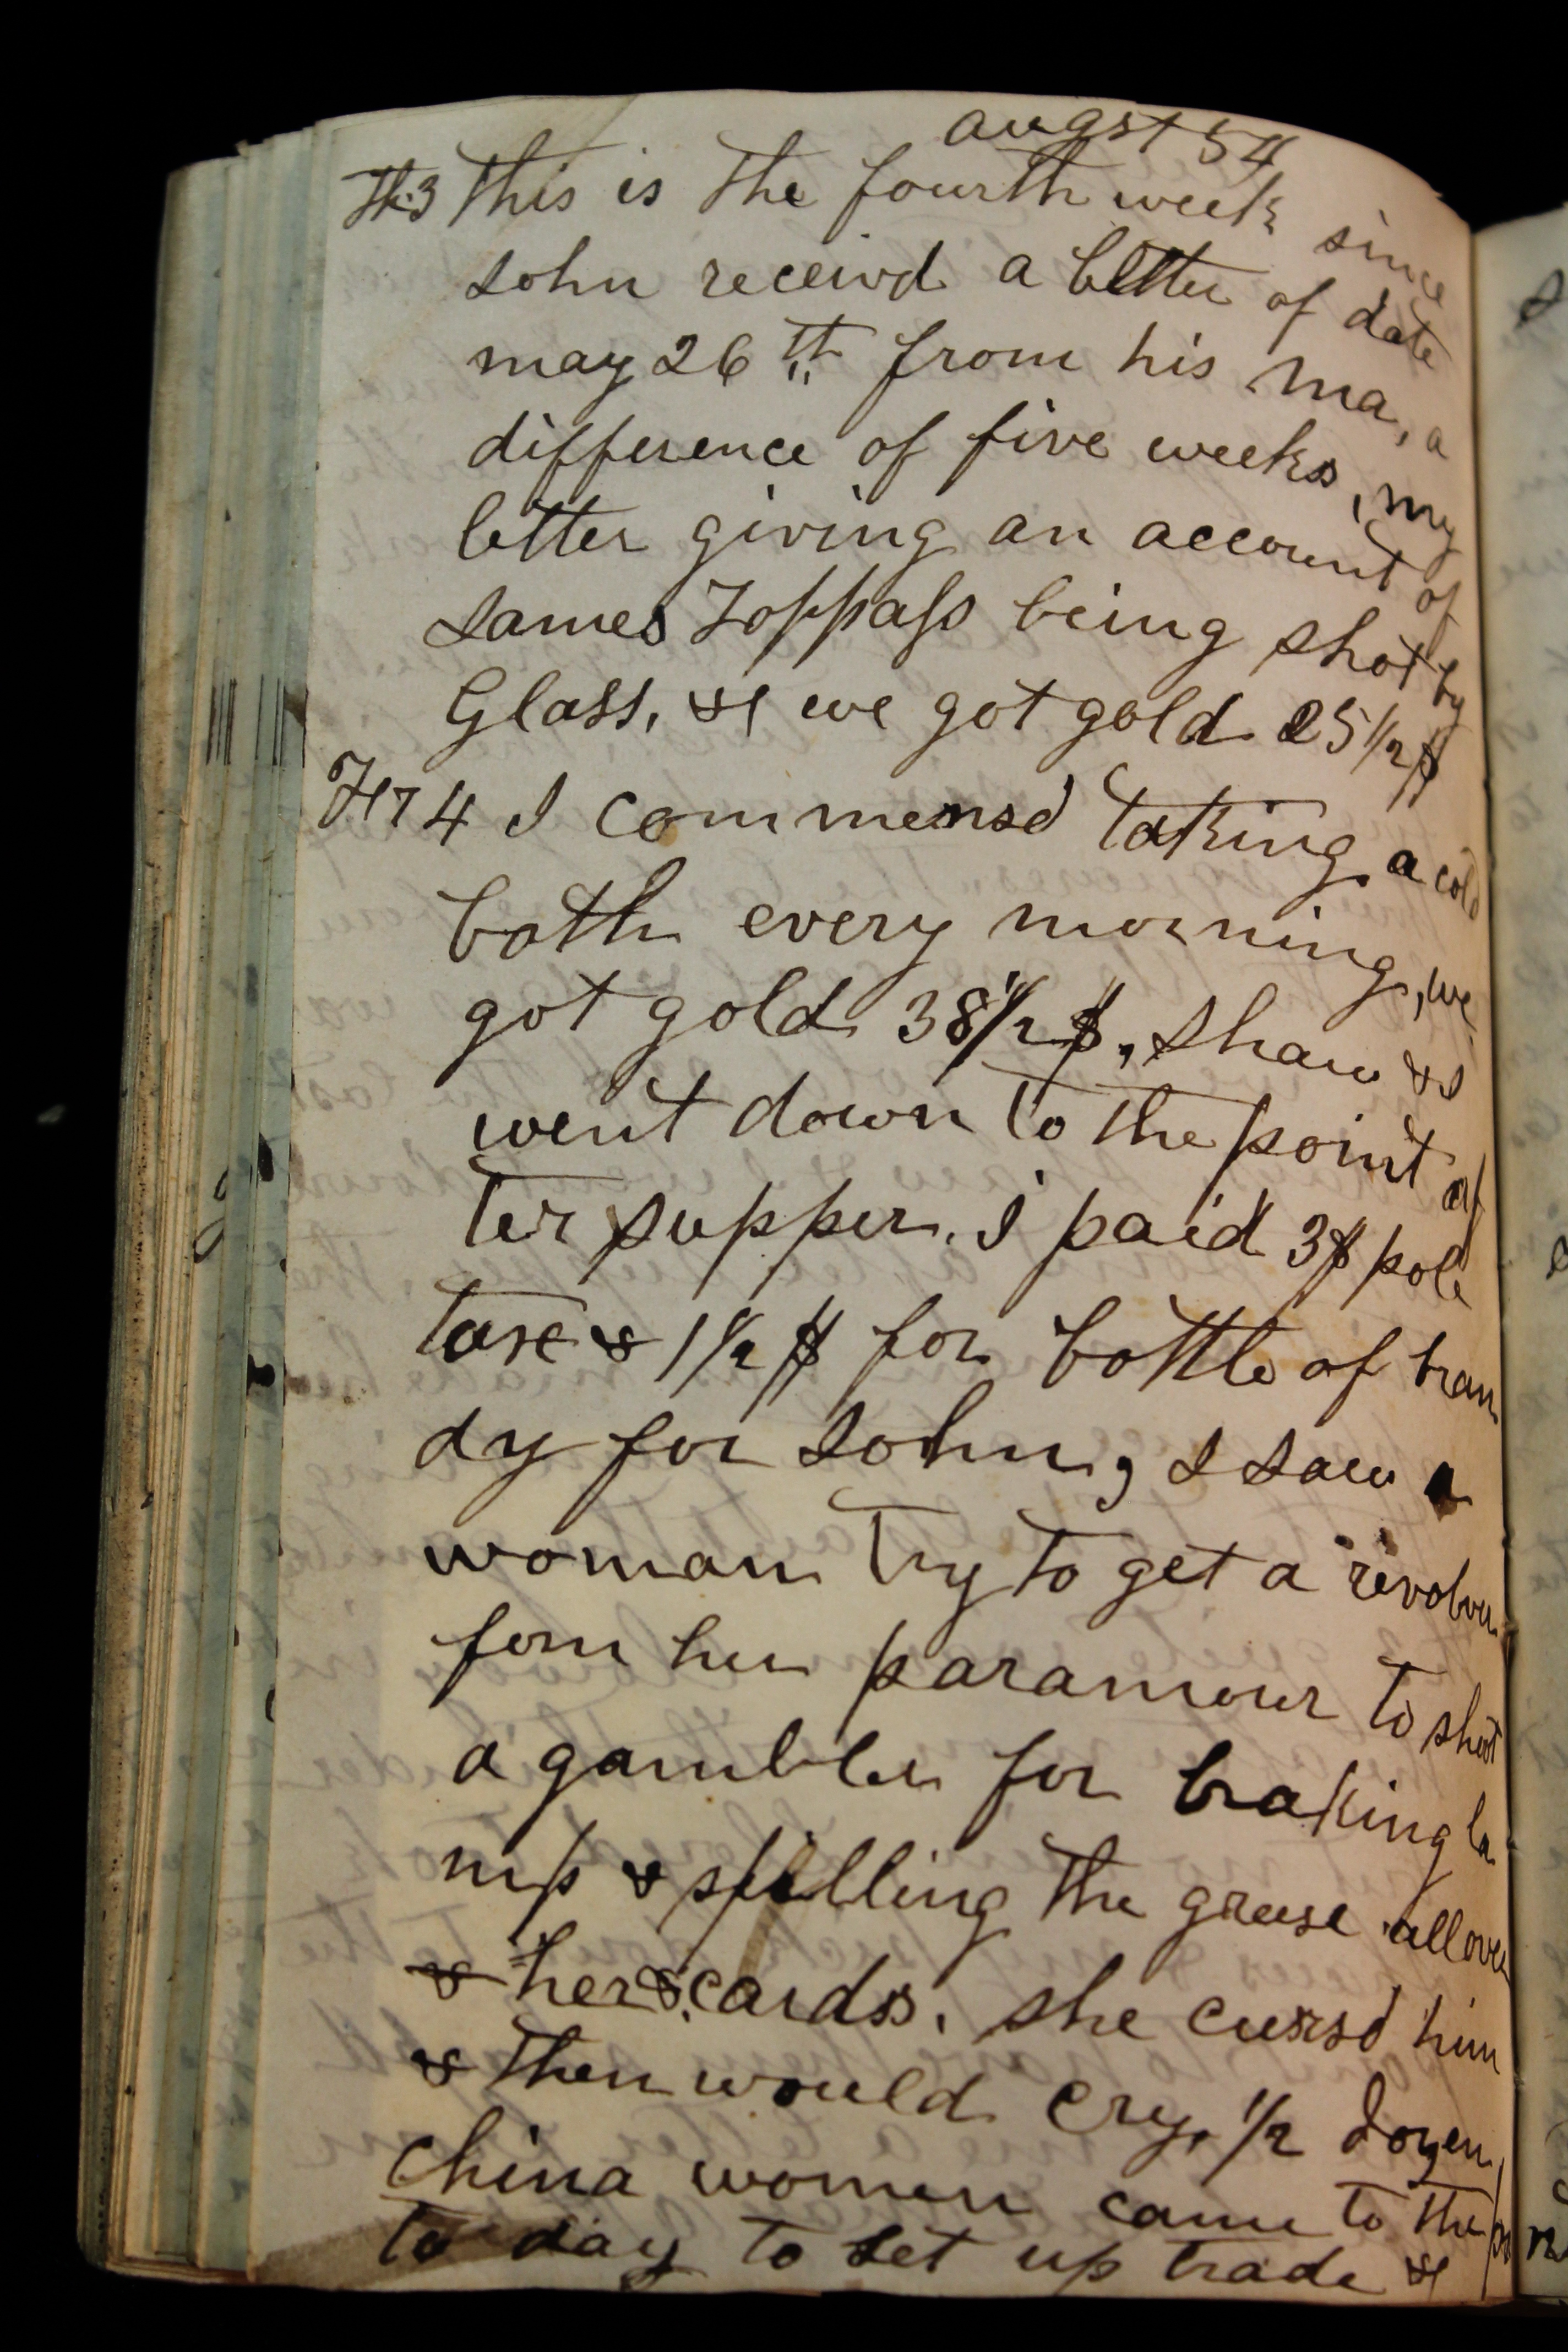 augst 54
Th 3 This is the fourth week since
John receivd a letter of date
may 26th from his ma, a
difference of five weeks, my
letter giving an account of
James Toppass being shot by
Glass, & we got gold 25 1/2 $
Fr 4 I commensd taking a cold
bath every morning, we
got gold 38 1/2 $, Shaw & I
went down to the point af
ter supper. I paid 3$ pole
tax & 1 1/2 $ for bottle of bran
dy for John, I saw a
woman try to get a revolver
fom her paramour to shoot
a gambler for braking la
mp & spilling the grease all over
& her & cards. she cursd him
& then would cry. 1/2 dozen
china women came to the
to day to set up trade &